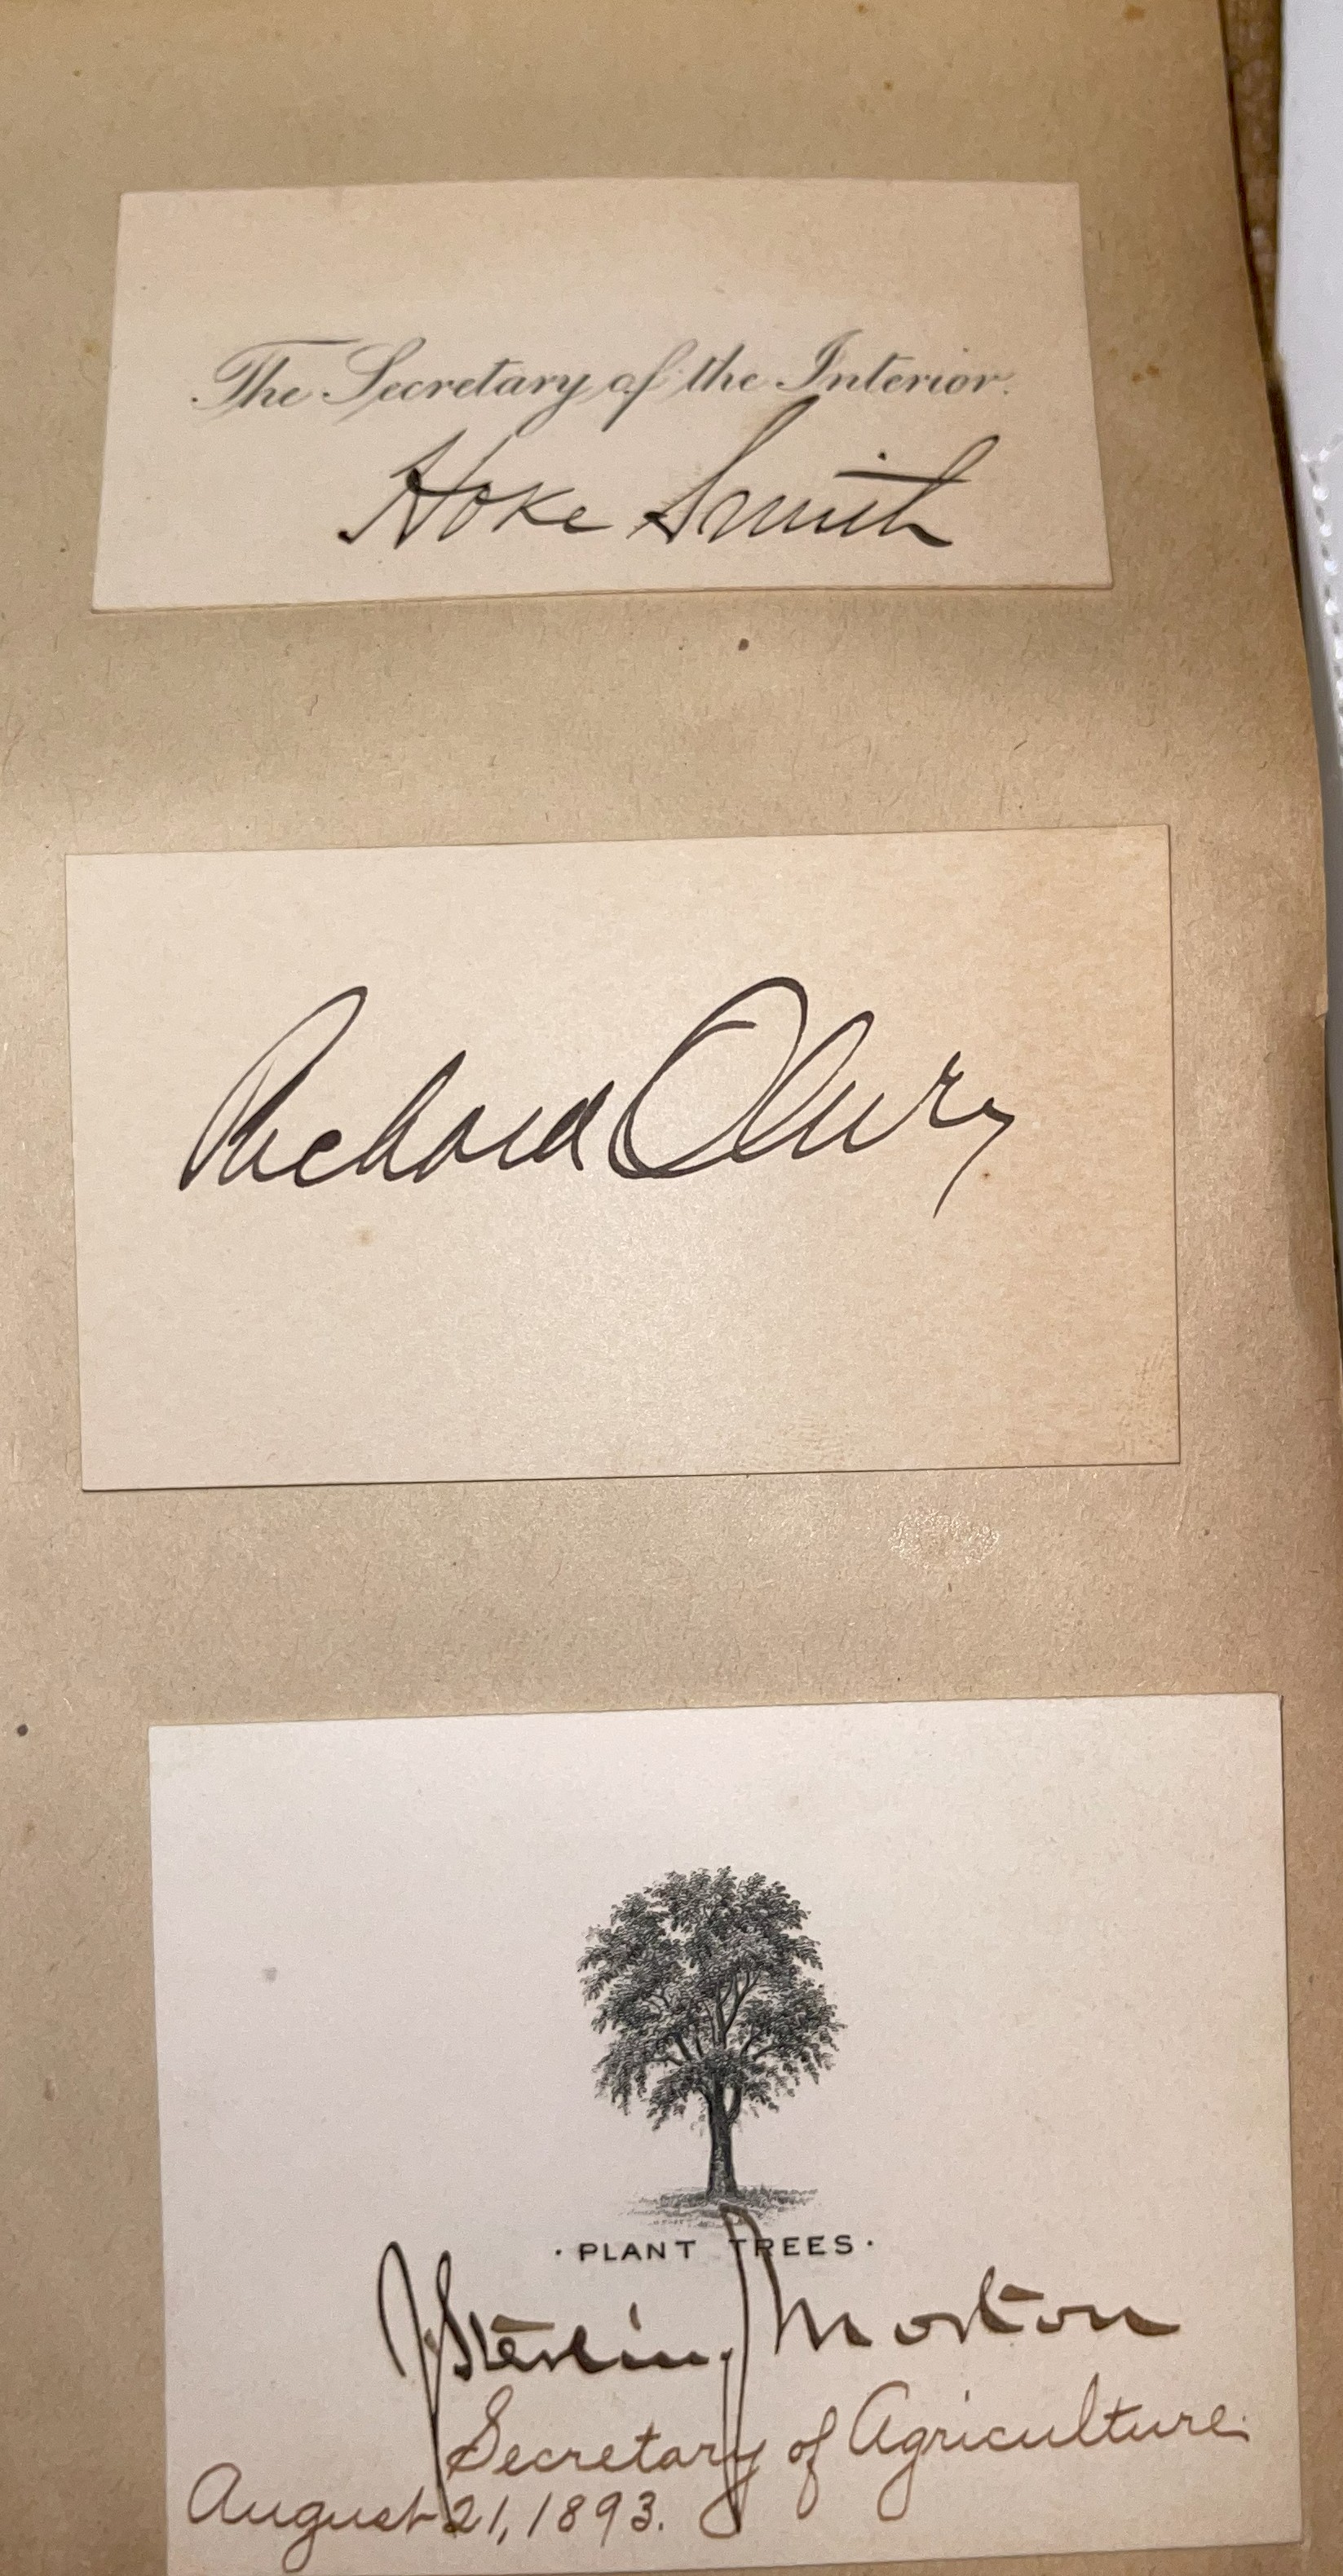 The Secretary of the Interior.
Hoke Smith
Richard Olney
· PLANT TREES ·
J Sterling Morton
Secretary of Agriculture.
August 21, 1893.